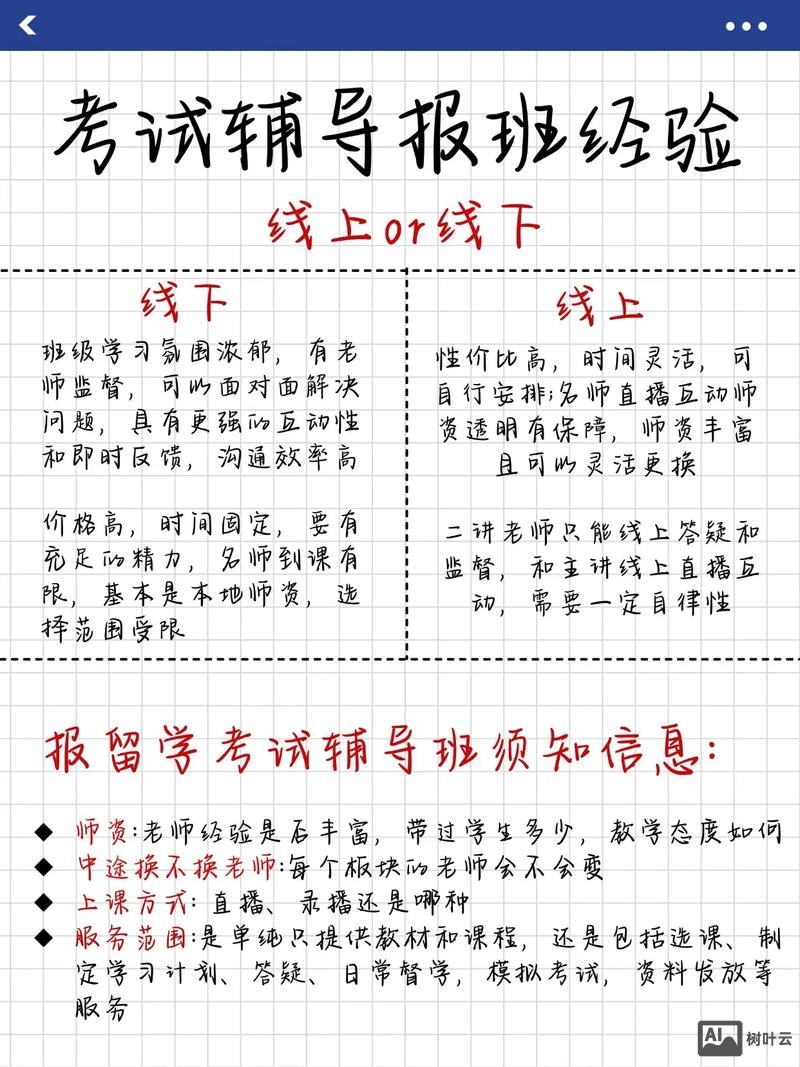 考试辅导报班经验
线上or线下
线下
班级学习氛围浓郁，有老
师监督，可以面对面解决
问题，具有更强的互动性
和即时反馈，沟通效率高
价格高，时间固定，要有
充足的精力，名师到课有
限，基本是本地师资，选
择范围受限
线上
性价比高，时间灵活，可
自行安排;名师直播互动师
资透明有保障，师资丰富
且可以灵活更换
二讲老师只能线上答疑和
监督，和主讲线上直播互
动，需要一定自律性
报留学考试辅导班须知信息:
◆ 师资:老师经验是否丰富，带过学生多少，教学态度如何
◆ 中途换不换老师:每个板块的老师会不会变
◆ 上课方式: 直播、录播还是哪种
◆ 服务范围:是单纯只提供教材和课程，还是包括选课、制
定学习计划、答疑、日常督学，模拟考试，资料发放等
服务
AI 树叶云